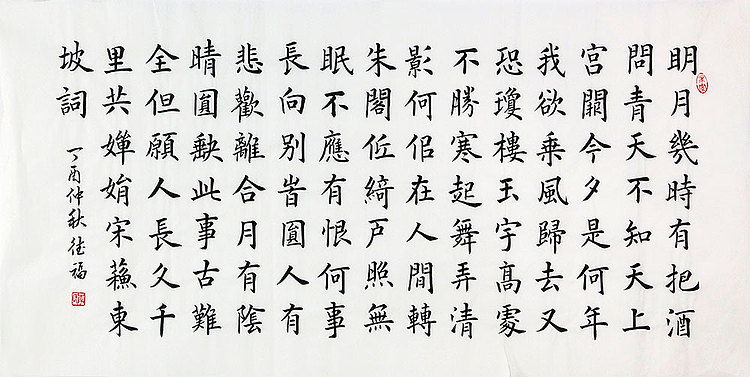 明月幾時有把酒
問青天不知天上
宮闕今夕是何年
我欲乘風歸去又
恐瓊樓玉宇高處
不勝寒起舞弄清
影何佀在人間轉
朱閣低綺戶照無
眠不應有恨何事
長向別旹圓人有
悲歡離合月有陰
晴圓缺此事古難
全但願人長久千
里共嬋娟宋蘇東
坡詞
丁酉仲秋德福